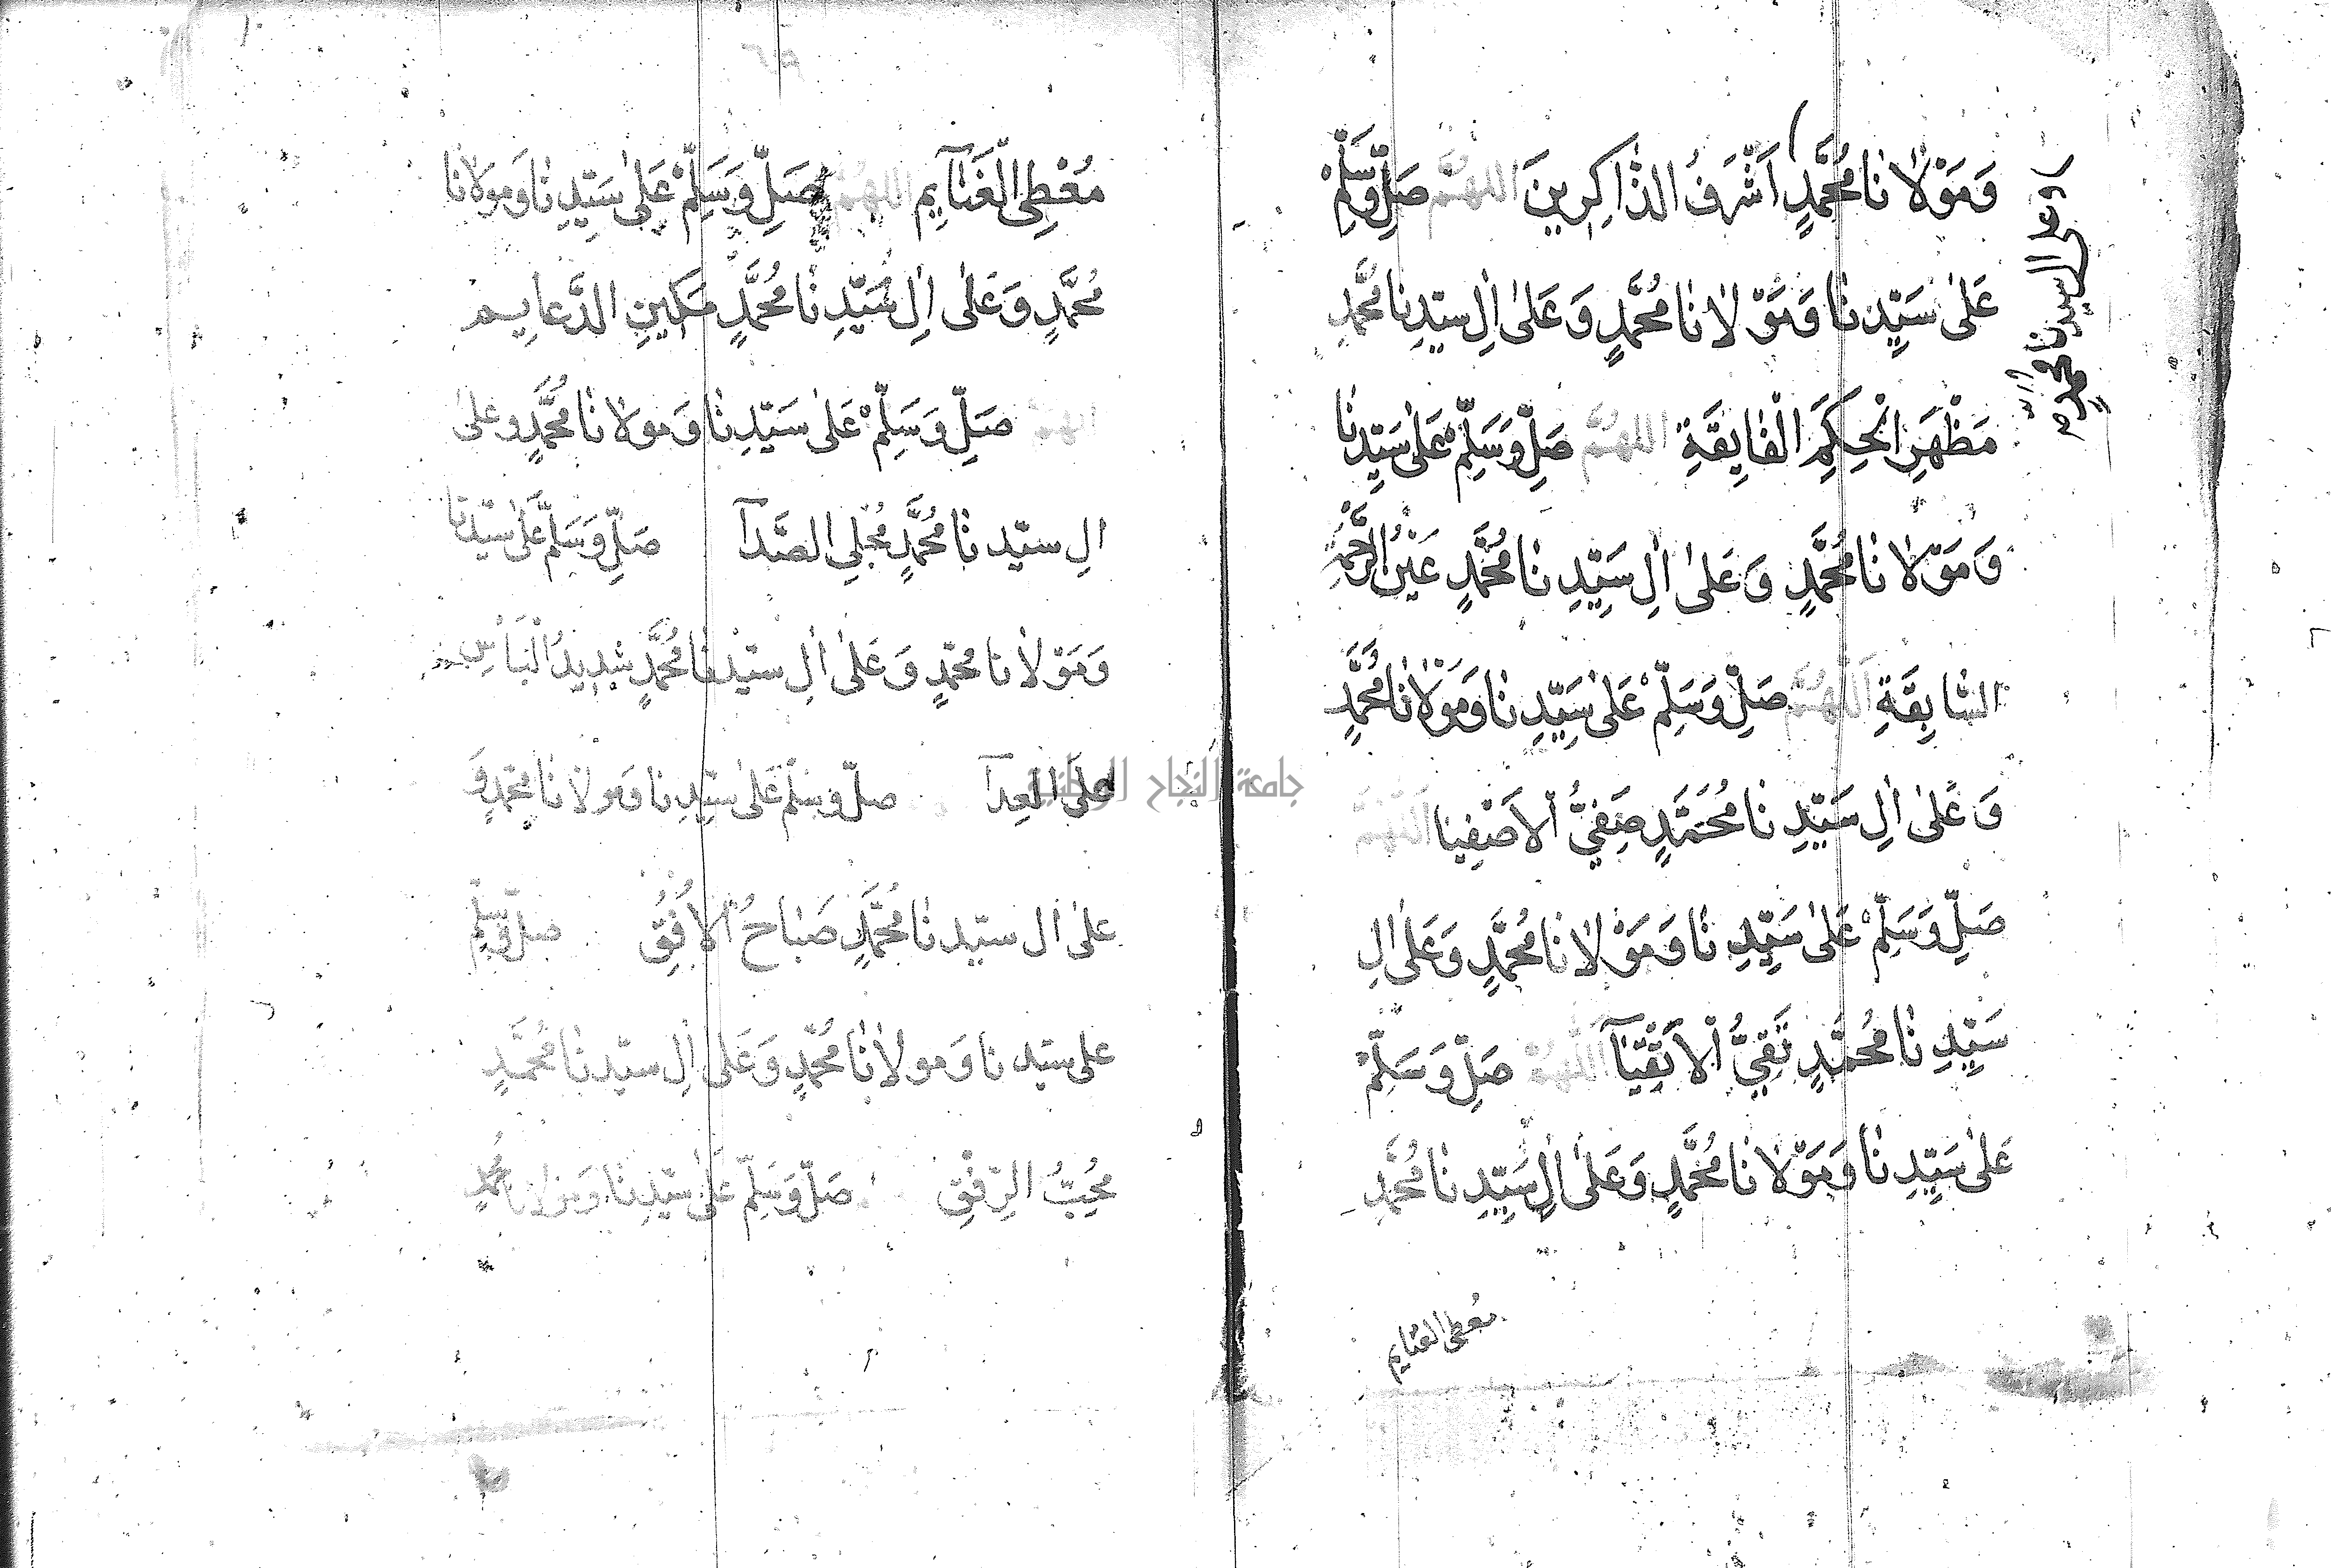 وَمَوْلَانَا مُحَمَّدٍ اَشْرَفُ الذَّاكِرِينَ اللهُمَّ صَلِّ وَسَلِّمْ
وعلى ال سيدنا محمد صح
عَلىٰ سَيِّدِنَا وَمَوْلَانَا مُحَمَّدٍ وَعَلىٰ اٰلِ سيّدِنَا مُحَمَّدٍ
مَظْهَرِ الْحِكَمِ الْفَايِقَةِ اللهُمَّ صَلِّ وَسَلِّمْ عَلىٰ سَيّدِنَا
وَمَوْلَانَا مُحَمَّدٍ وَعَلىٰ اٰلِ سَيِّدِنَا مُحَمَّدٍ عَيْنُ الرَّحْمَةِ
السَّابِقَةِ اَللّهُمَّ صَلِّ وَسَلِّمْ عَلىٰ سَيِّدِنَا وَمَوْلَانَا مُحَمَّدٍ
وَعَلىٰ اٰلِ سَيّدِنَا مُحَمَّدٍ صَفِيُّ الْاَصْفِيَا اَللّهُمَّ
صَلِّ وَسَلِّمْ عَلىٰ سَيِّدِنَا وَمَوْلَانَا مُحَمَّدٍ وَعَلىٰ اٰلِ
سَيِّدِنَا مُحَمَّدٍ تَقِيُّ الْاَتْقِيَآ اَللّهُمَّ صَلِّ وَسَلِّمْ
عَلىٰ سَيِّدِنَا وَمَوْلَانَا مُحَمَّدٍ وَعَلىٰ اٰلِ سَيِّدِنَا مُحَمَّدٍ
معطى الغنايم
مُعْطِى الْغَنَآيِمِ اللهُمَّ صَلِّ وَسَلِّمْ عَلىٰ سَيّدِنَا وَمَولَانَا
مُحَمَّدٍ وَعَلىٰ اٰلِ سَيّدِنَا مُحَمَّدٍ مَكِينِ الدَّعَايِم
اللهُمَّ صَلِّ وَسَلِّمْ عَلىٰ سَيّدِنَا وَمَولَانَا مُحَمَّدٍ وعَلىٰ
الِ سيّدنَا مُحَمَّدٍ مُجْلِي الصَّدَآ صَلِّ وَسَلِّمْ عَلىٰ سَيّدنَا
وَمَوْلَانا محمّدٍ وَعَلىٰ اٰلِ سيّدنَا مُحَمَّدٍ شديدُ الْبَاْسِ
عَلَى الْعِدآ صلّ وسلّم عَلىٰ سيّدِنا ومولانا محمّدٍ وَ
عَلىٰ اٰل سيّدنَا مُحَمَّدٍ صَبَاحُ الْاُفُقِ صلّ وسلّم
على سيّدنا وَمولانَا مُحَمّدٍ وَعَلىٰ اٰلِ سيّدنَا مُحَمَّدٍ
مُحِبُّ الرِفْقِ صَلّ وَسَلِّمْ عَلىٰ سيّدِنَا وَمَولانا مُحَمّدٍ
جامعة النجاح الوطنية